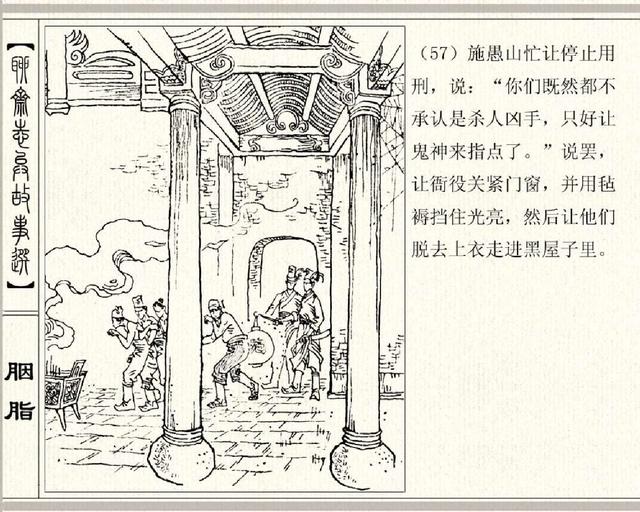 【聊斋志异故事选】
胭脂
（57）施愚山忙让停止用
刑，说：“你们既然都不
承认是杀人凶手，只好让
鬼神来指点了。”说罢，
让衙役关紧门窗，并用毡
褥挡住光亮，然后让他们
脱去上衣走进黑屋子里。